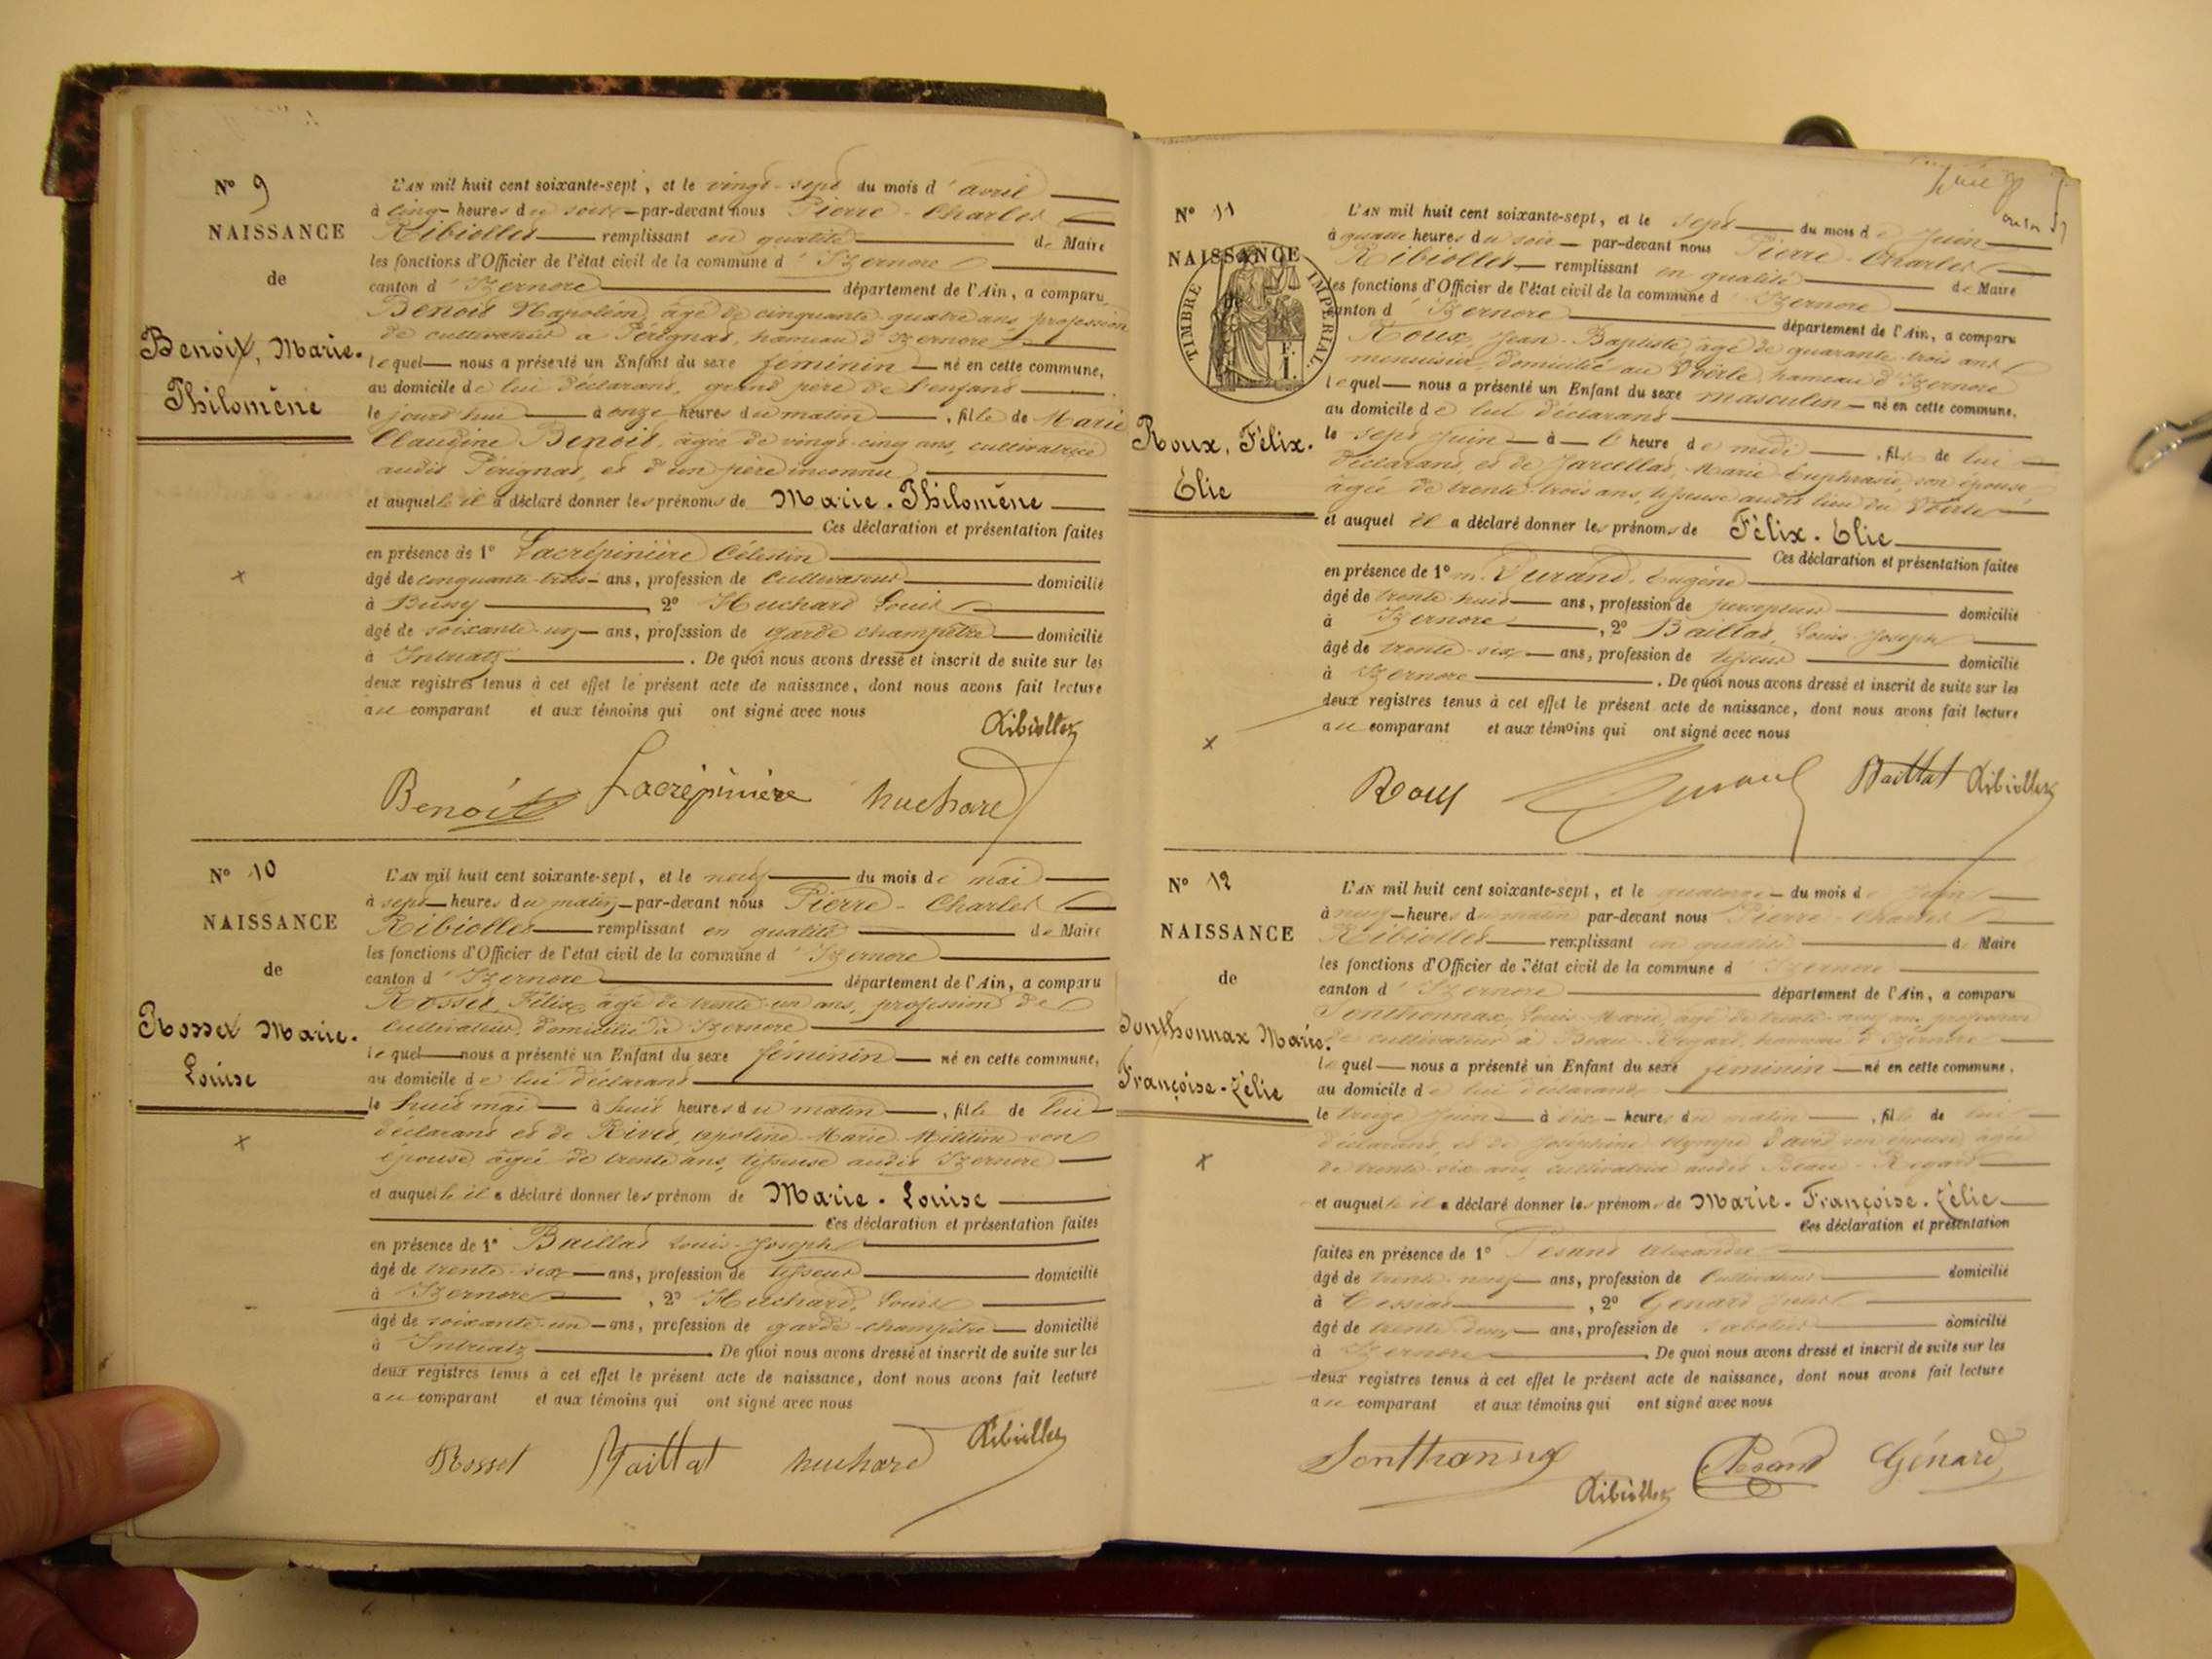 N° 9
NAISSANCE
de
Benoit, Marie.
Philomène
L'AN mil huit cent soixante-sept, et le vingt-sept du mois d'avril
à cinq heures du soir par-devant nous Pierre-Charles
Ribiollet remplissant en qualité de Maire
les fonctions d'Officier de l'état civil de la commune d'Izernore
canton d'Izernore département de l'Ain, a comparu
Benoit Napoléon, âgé de cinquante-quatre ans, profession
de cultivateur à Pérignat, hameau d'Izernore
lequel nous a présenté un Enfant du sexe féminin né en cette commune,
au domicile de lui déclarant, grand père de l'enfant
le jourd'hui à onze heures du matin, fille de Marie
Claudine Benoit, âgée de vingt-cinq ans, cultivatrice
audit Pérignat, et d'un père inconnu
et auquelle il a déclaré donner les prénoms de Marie-Philomène
Ces déclaration et présentation faites
en présence de 1° Lacrépinière Célestin
âgé de cinquante-trois ans, profession de cultivateur domicilié
à Bussy, 2° Huchard Louis
âgé de soixante-un ans, profession de garde champêtre domicilié
à Intriatz. De quoi nous avons dressé et inscrit de suite sur les
deux registres tenus à cet effet le présent acte de naissance, dont nous avons fait lecture
au comparant et aux témoins qui ont signé avec nous
Ribiollet
Benoit Lacrépinière huchard
N° 10
NAISSANCE
de
Rosset Marie.
Louise
L'AN mil huit cent soixante-sept, et le neuf du mois de mai
à sept heures du matin par-devant nous Pierre-Charles
Ribiollet remplissant en qualité de Maire
les fonctions d'Officier de l'état civil de la commune d'Izernore
canton d'Izernore département de l'Ain, a comparu
Rosset, Félix, âgé de trente-un ans, profession de
cultivateur, domicilié à Izernore
lequel nous a présenté un Enfant du sexe féminin né en cette commune,
au domicile de lui déclarant
le huit mai à huit heures du matin, fille de lui
déclarant et de Rivet, apoline Marie son
épouse, âgée de trente ans, tisseuse audit Izernore
et auquelle il a déclaré donner les prénom de Marie-Louise
Ces déclaration et présentation faites
en présence de 1° Baillat Louis-Joseph
âgé de trente-six ans, profession de tisseur domicilié
à Izernore, 2° Huchard, Louis
âgé de soixante-un ans, profession de garde-champêtre domicilié
à Intriatz. De quoi nous avons dressé et inscrit de suite sur les
deux registres tenus à cet effet le présent acte de naissance, dont nous avons fait lecture
au comparant et aux témoins qui ont signé avec nous
Rosset Baillat huchard Ribiollet
N° 11
NAISSANCE
de
TIMBRE IMPÉRIAL
F.
1.
Roux, Félix.
Elie
L'AN mil huit cent soixante-sept, et le sept du mois de Juin
à quatre heures du soir par-devant nous Pierre-Charles
Ribiollet remplissant en qualité de Maire
les fonctions d'Officier de l'état civil de la commune d'Izernore
canton d'Izernore département de l'Ain, a comparu
Roux, Jean-Baptiste, âgé de quarante-trois ans
menuisier, domicilié au Voërle, hameau d'Izernore
lequel nous a présenté un Enfant du sexe masculin né en cette commune,
au domicile de lui déclarant
le sept Juin à l'heure de midi, fils de lui
déclarant, et de Jarcellat, Marie Euphrasie, son épouse
âgée de trente-trois ans, tisseuse audit lieu du Voërle
et auquel il a déclaré donner les prénoms de Félix-Elie
Ces déclaration et présentation faites
en présence de 1° m. Durand, Eugène
âgé de trente-huit ans, profession de percepteur domicilié
à Izernore, 2° Baillat, Louis-Joseph
âgé de trente-six ans, profession de tisseur domicilié
à Izernore. De quoi nous avons dressé et inscrit de suite sur les
deux registres tenus à cet effet le présent acte de naissance, dont nous avons fait lecture
au comparant et aux témoins qui ont signé avec nous
Roux Durand Baillat Ribiollet
N° 12
NAISSANCE
de
Tonthonnax Marie.
Françoise-Zélie
L'AN mil huit cent soixante-sept, et le quatorze du mois de Juin
à neuf heures du matin par-devant nous Pierre-Charles
Ribiollet remplissant en qualité de Maire
les fonctions d'Officier de l'état civil de la commune d'Izernore
canton d'Izernore département de l'Ain, a comparu
Tonthonnax, Louis-Marie, âgé de trente-neuf ans, profession
de cultivateur à Beau-Regard, hameau d'Izernore
lequel nous a présenté un Enfant du sexe féminin né en cette commune,
au domicile de lui déclarant
le treize Juin à dix heures du matin, fille de lui
déclarant, et de Joséphine Olympe David son épouse, âgée
de trente-six ans, cultivatrice audit Beau-Regard
et auquelle il a déclaré donner les prénoms de Marie-Françoise-Zélie
Ces déclaration et présentation
faites en présence de 1° Pesand Alexandre
âgé de trente-neuf ans, profession de Cultivateur domicilié
à Cessiat, 2° Génard Jules
âgé de trente-deux ans, profession de sabotier domicilié
à Izernore. De quoi nous avons dressé et inscrit de suite sur les
deux registres tenus à cet effet le présent acte de naissance, dont nous avons fait lecture
au comparant et aux témoins qui ont signé avec nous
Tonthonnax Ribiollet Pesand Génard